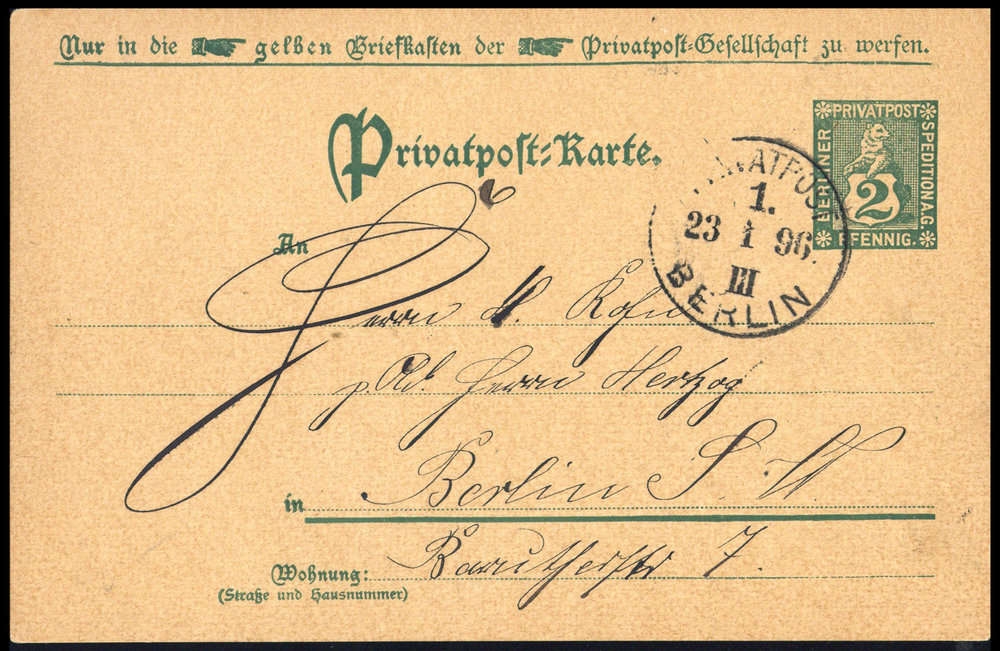 Nur in die gelben Briefkasten der Privatpost-Gesellschaft zu werfen.
Privatpost-Karte.
BERLINER PRIVATPOST SPEDITION A.G
2
PFENNIG.
PRIVATPOST
1.
23 1 96.
III
BERLIN
An
Herrn
p. Ad. Herrn Hertzog
in Berlin S. W
Wohnung: Barutherstr 7.
(Straße und Hausnummer)